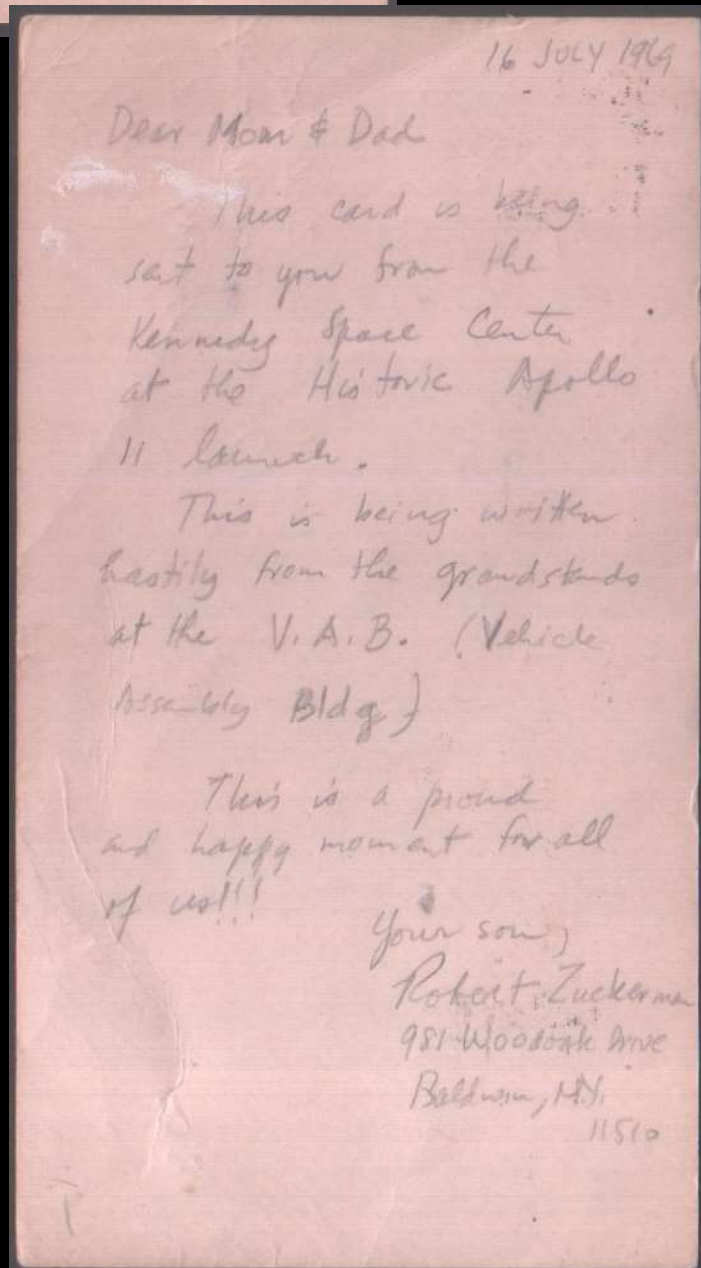 16 JULY 1969
Dear Mom & Dad
This card is being
sent to you from the
Kennedy Space Center
at the Historic Apollo
11 launch.
This is being written
hastily from the grandstands
at the V.A.B. (Vehicle
Assembly Bldg)
This is a proud
and happy moment for all
of us!!!
Your son,
Robert Zuckerman
981 Woodoak Drive
Baldwin, N.Y.
11510